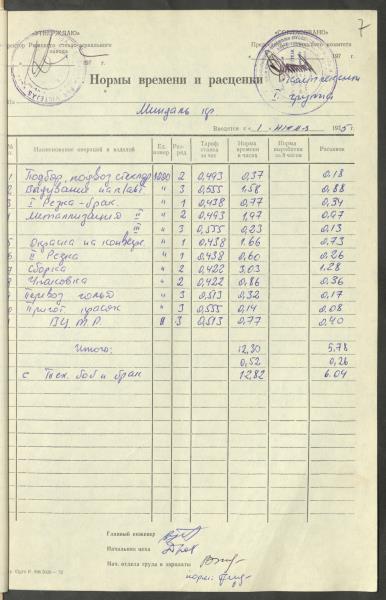 7
„УТВЕРЖДАЮ"
„СОГЛАСОВАНО"
завода
197 г.
197 г.
Нормы времени и расценки
Миндаль кр
Вводятся с „ 1 " 1975 г.
Наименование операций и изделий Ед. Раз-ряд Тариф. ставка за час Норма времени в часах Норма выработки за 8 часов Расценок
1 Подбор, подвоз стеклодр 1000 2 0,493 0,37 0.18
2 Выдувание " 3 0,555 1.58 0,88
I Резка-брак. " 1 0,438 0,77 0,34
4 Металлизация II " 2 0,493 1,97 0,97
III " 3 0,555 0,23 0,13
5 Окраска на конвейр. " 1 0,438 1.66 0,73
6 II Резка " 1 0,438 0,60 0,26
7 Сборка " 2 0,422 3,03 1.28
Упаковка " 2 0,422 0,86 0,36
Перевоз " 3 0,513 0,32 0,17
Пригот красок " 3 0,555 0,14 0,08
В Ц М Р. " 3 0,513 0,77 0,40
Итого: 12,30 5,78
0,52 0,26
с Тех. боб и брак 12,82 6.04
Главный инженер
Начальник цеха
Нач. отдела труда и зарплаты